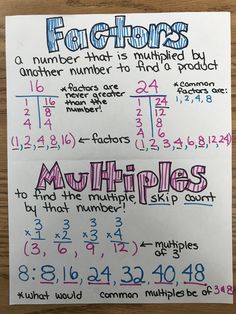 Factors
a number that is multiplied by
another number to find a product
16
1 16
2 8
4 4
(1, 2, 4, 8, 16) ← factors
* factors
are never
greater
than the
number!
24
1 24
2 12
3 8
4 6
(1, 2, 3, 4, 6, 8, 12, 24)
* common
factors are:
1, 2, 4, 8
Multiples
to find the multiple, skip count
by that number!
3 3 3 3
x1 x2 x3 x4
(3, 6, 9, 12) ← multiples
of 3
8: 8, 16, 24, 32, 40, 48
*what would common multiples be of 3 & 8